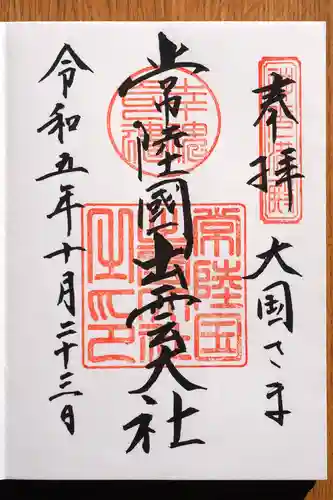 奉拝
大国さま
常陸國出雲大社
令和五年十月二十三日
幸魂奇魂
常陸国出雲大社之印